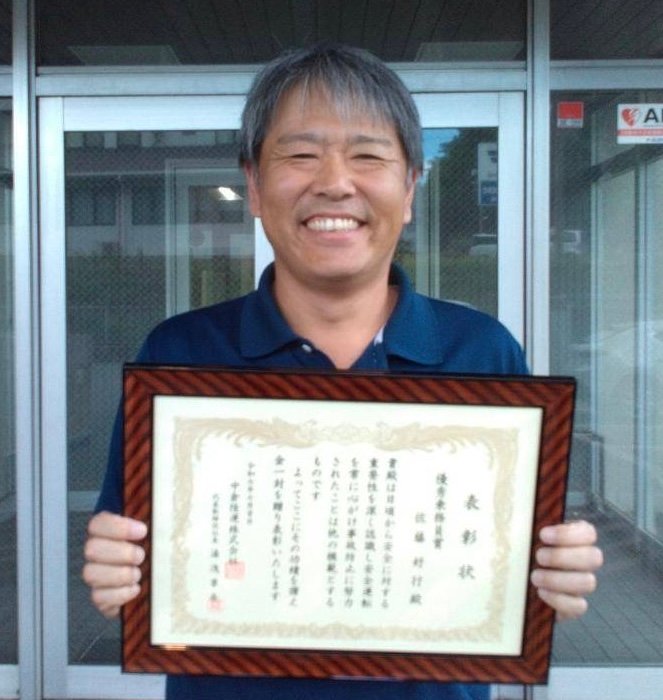 表彰状
優秀乗務員賞
佐藤 好行 殿
貴殿は日頃から安全に対する
重要性を深く認識し安全運転
を常に心がけ事故防止に努力
されたことは他の模範とする
ものです
よってここにその功績を讃え
金一封を贈り表彰いたします
中倉陸運株式会社